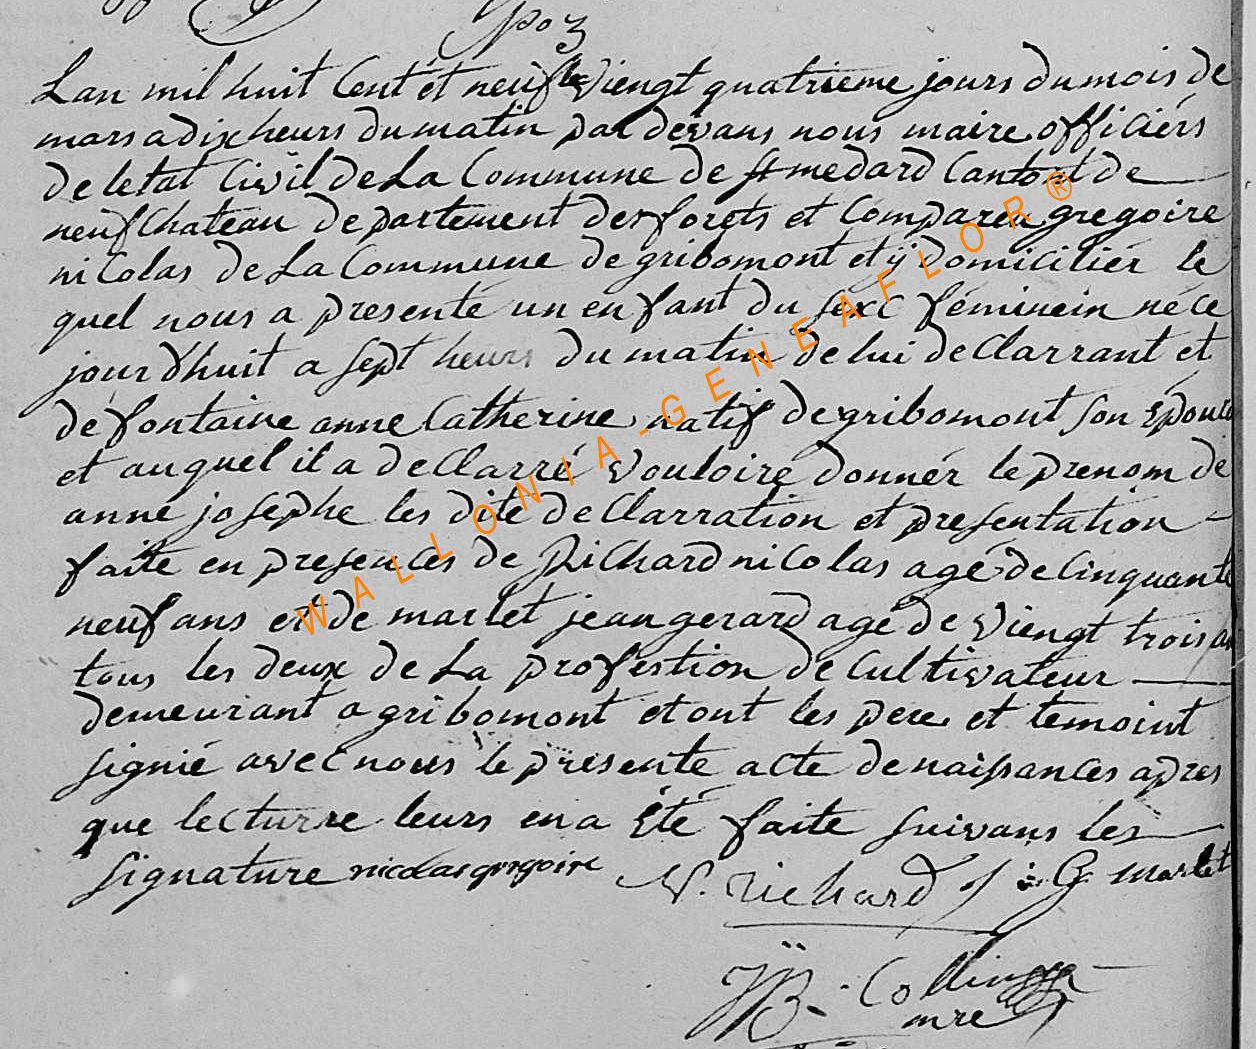 Lan mil huit Cent et neuf le viengt quatrieme jours du mois de
mars a dix heurs du matin par devans nous maire officiérs
de letat Civil de La Commune de st medard Cantont de
neufchateau departement des forets et Comparea gregoire
nicolas de La Commune de gribomont et ÿ domiciliér le
quel nous a presente un enfant du sexe féminein né ce
jour dhuit a sept heurs du matin de lui declarrant et
de fontaine anne Catherine natif de gribomont son Epouse
et auquel il a declarré vouloire donnér le prenom de
anne josephe les dite declarration et presentation
faite en presences de Richard nicolas agé de cinquante
neuf ans et de marlet jean gerard age de viengt trois ans
tous les deux de La profestion de Cultivateur
demeurant a gribomont et ont les pere et temoint
signié avec nous le présente acte de naissances apres
que lecturre leurs en a Eté faite suivans les
signature nicolas gregoire N. Richard J: G. marlet
JB. Collin
mre
WALLONIA-GENEAFLOR®